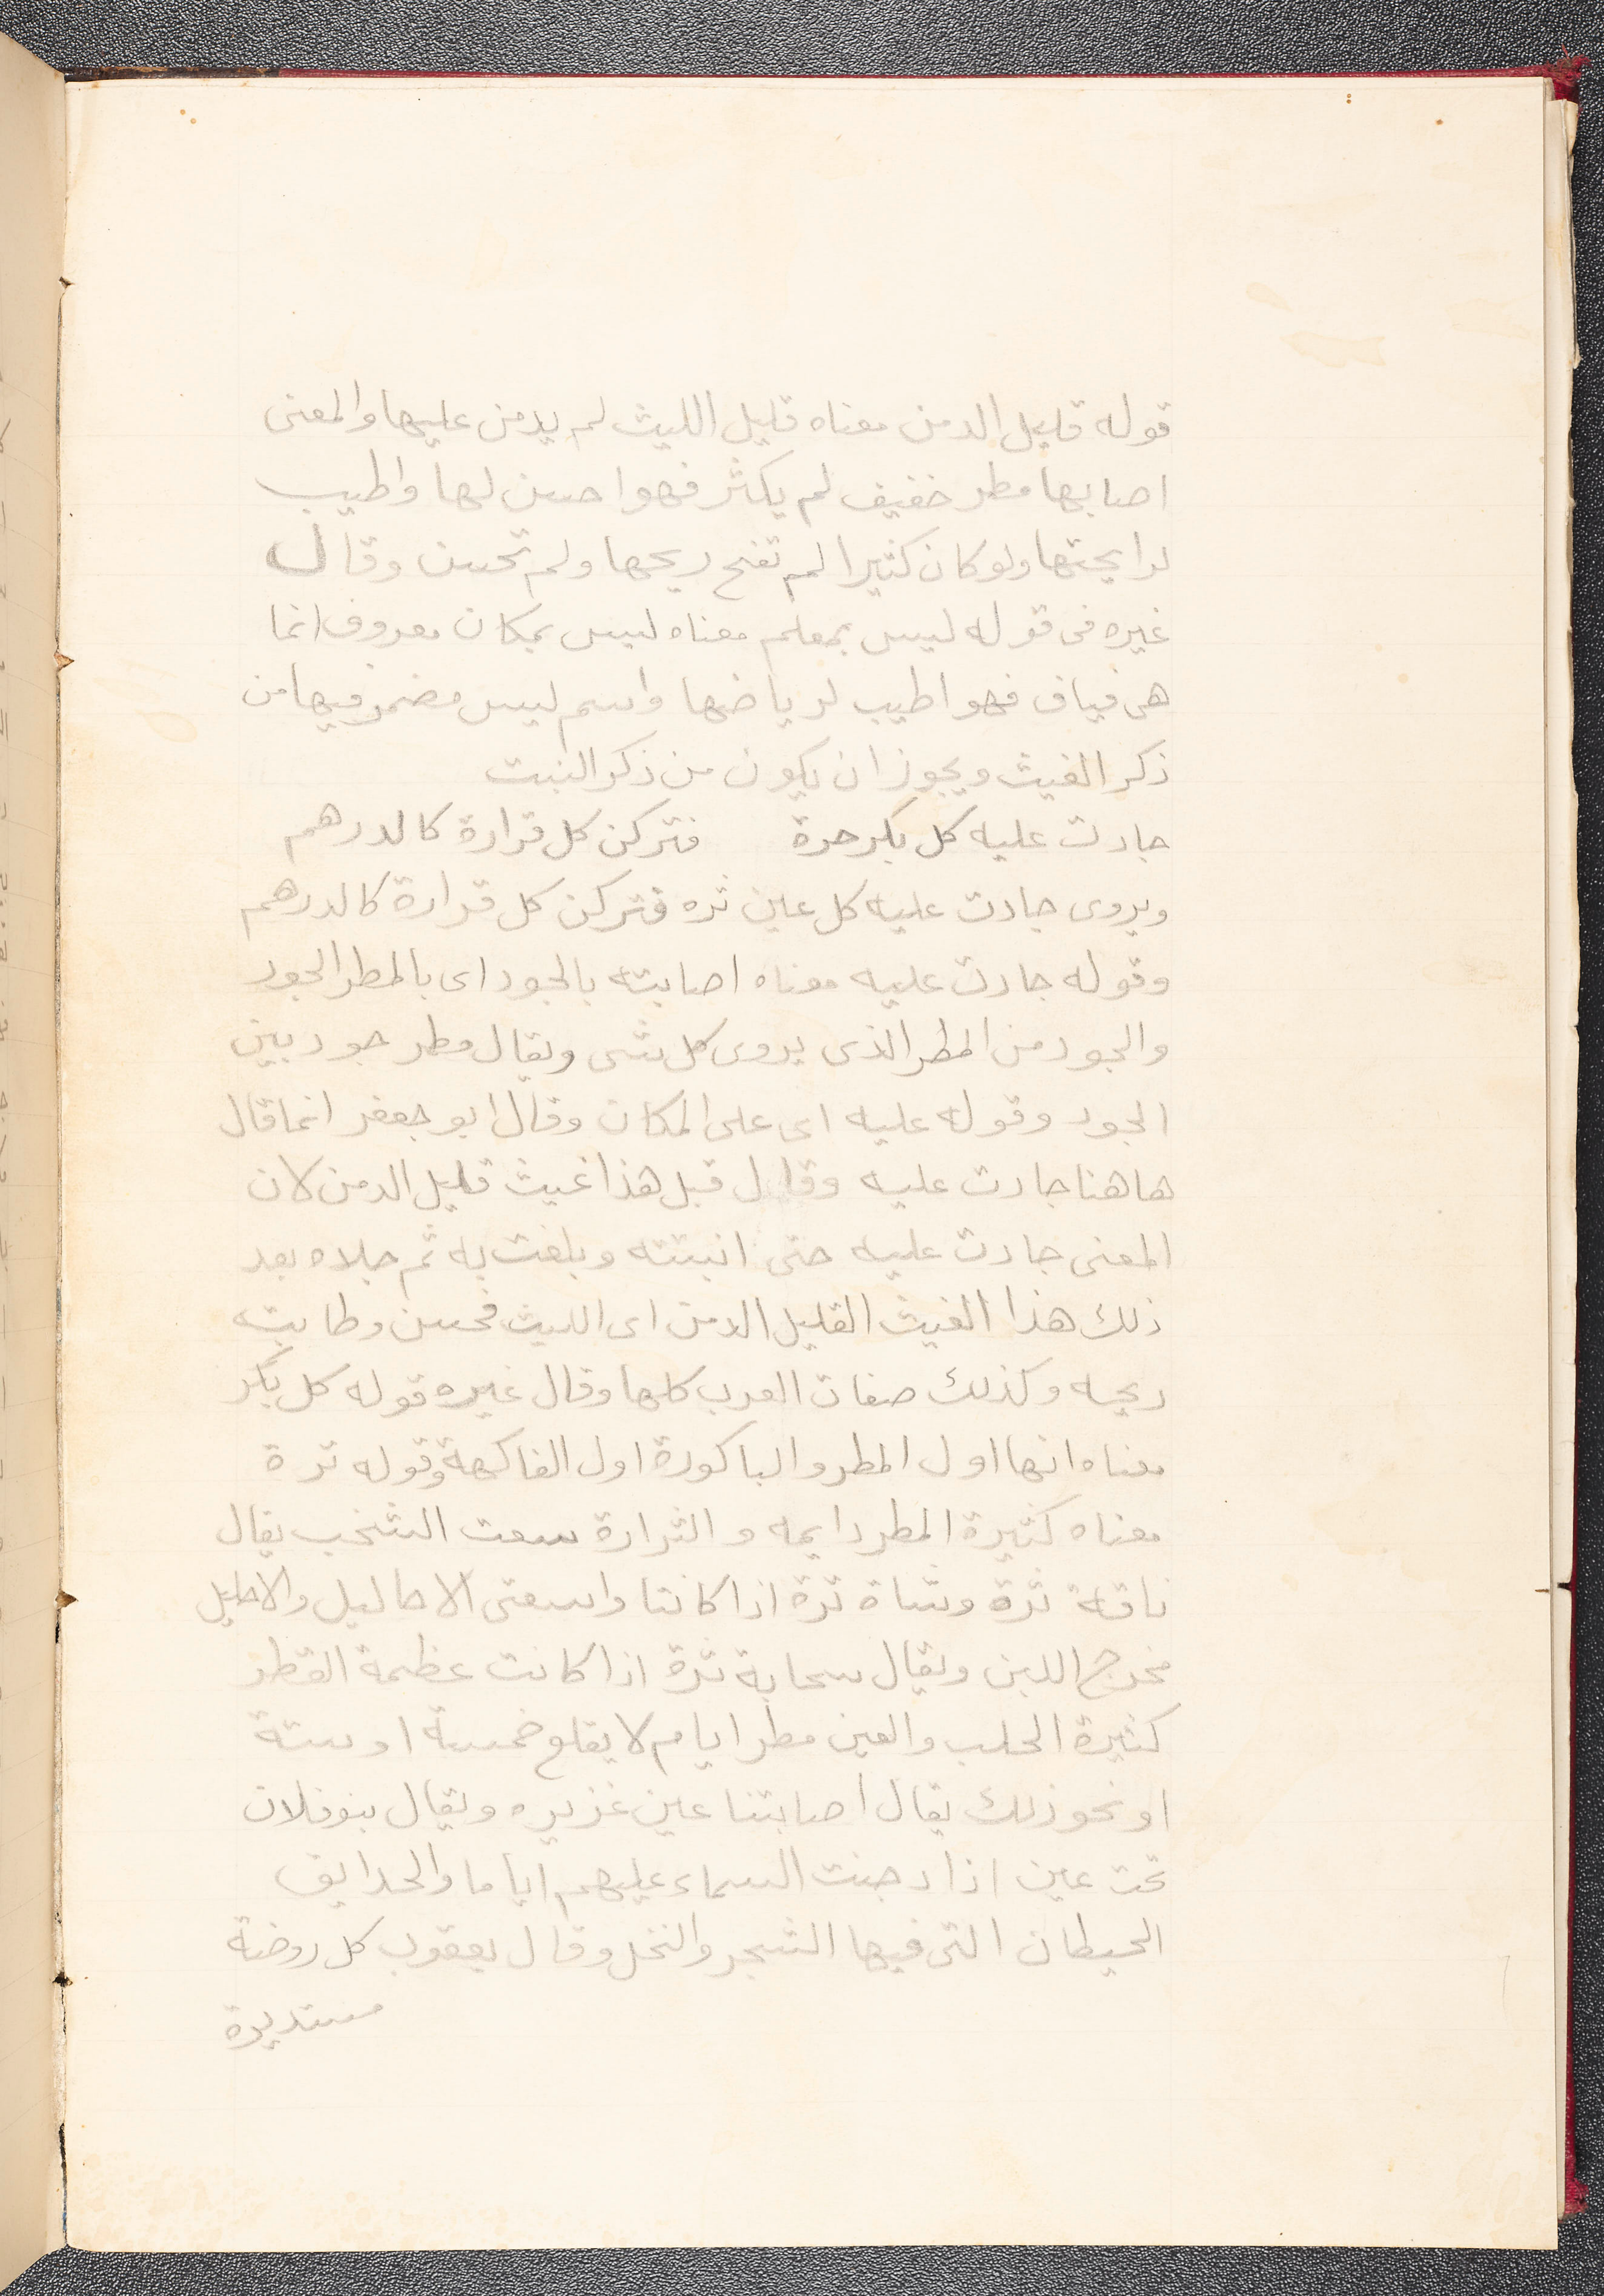 قوله قليل الدمن معناه قليل الليث لم يدمن عليها والمعنى
اصابها مطر خفيف لم يكثر فهو احسن لها واطيب
لرايحتها ولو كان كثيرا لم تفح ريحها ولم تحسن وقال
غيره فى قوله ليس بمعلم معناه ليس بمكان معروف انما
هى فياف فهو اطيب لرياضها واسم ليس مضمر فيها من
ذكر الغيث ويجوز ان يكون من ذكر النبت
جادت عليه كل بكر حرة فتركن كل قرارة كالدرهم
ويروى جادت عليه كل عين ثره فتركن كل قرارة كالدرهم
وقوله جادت عليه معناه اصابته بالجود اى بالمطر الجود
والجود من المطر الذى يروى كل شى ويقال مطر جود بين
الجود وقوله عليه اى على المكان وقال ابو جعفر انما قال
هاهنا جادت عليه وقال قبل هذا غيث قليل الدمن لان
المعنى جادت عليه حتى انبتته وبلغت به ثم جلاه بعد
ذلك هذا الغيث القليل الدمن اى الليث فحسن وطابت
ريحه وكذلك صفات العرب كلها وقال غيره قوله كل بكر
معناه انها اول المطر والباكورة اول الفاكهة وقوله ثرة
معناه كثيرة المطر دايمه والثرارة سعت الشخب يقال
ناقة ثرة وشاة ثرة اذا كانتا واسعتى الاحاليل والاحليل
مخرج اللبن ويقال سحابة ثرة اذا كانت عظمة القطر
كثيرة الحلب والعين مطر ايام لا يقلع خمسة او ستة
او نحو ذلك يقال اصابتنا عين غزيره ويقال بنو فلان
تحت عين اذا دجنت السماء عليهم اياما والحدايق
الحيطان التى فيها الشجر والنخل وقال يعقوب كل روضة
مستديرة